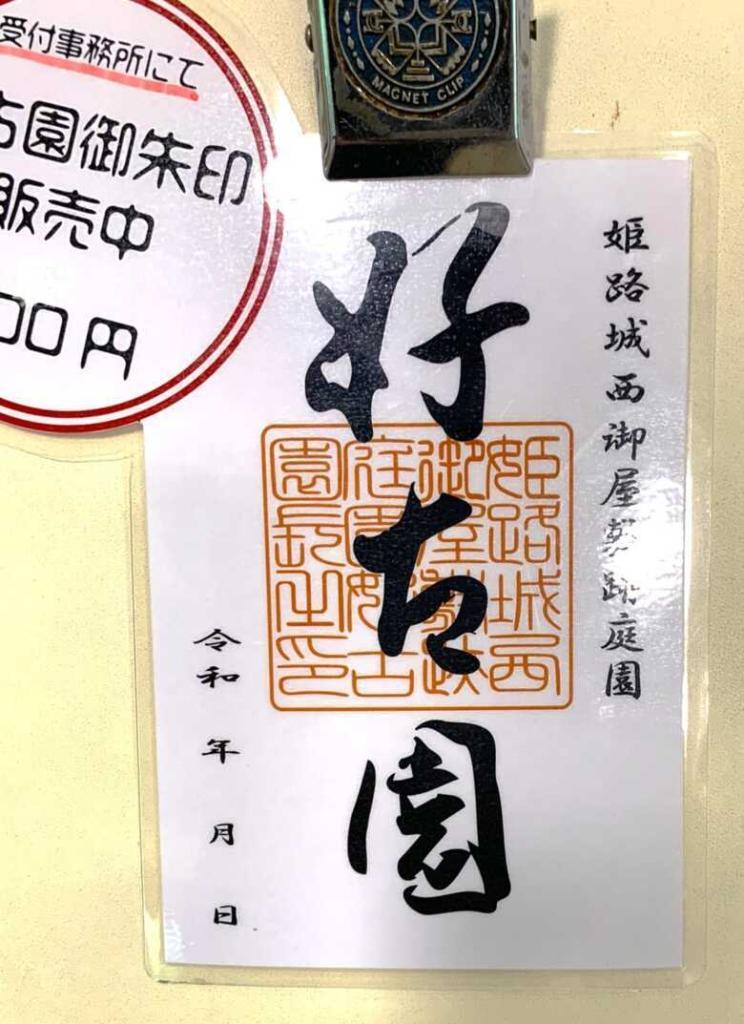 受付事務所にて
古園御朱印
販売中
00円
MAGNET CLIP
姫路城西御屋敷跡庭園
好古園
姫路城西
御屋敷跡
庭園好古
園長之印
令和 年 月 日